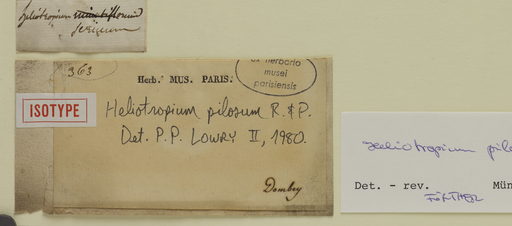 Heliotropium
sericeum
363
Herb. MUS. PARIS.
ex herbario
musei
parisiensis
ISOTYPE
Heliotropium pilosum R. & P.
Det. P.P. LOWRY II, 1980.
Dombey
Heliotropium pilo
Det. - rev. Mün
FÖRTHER